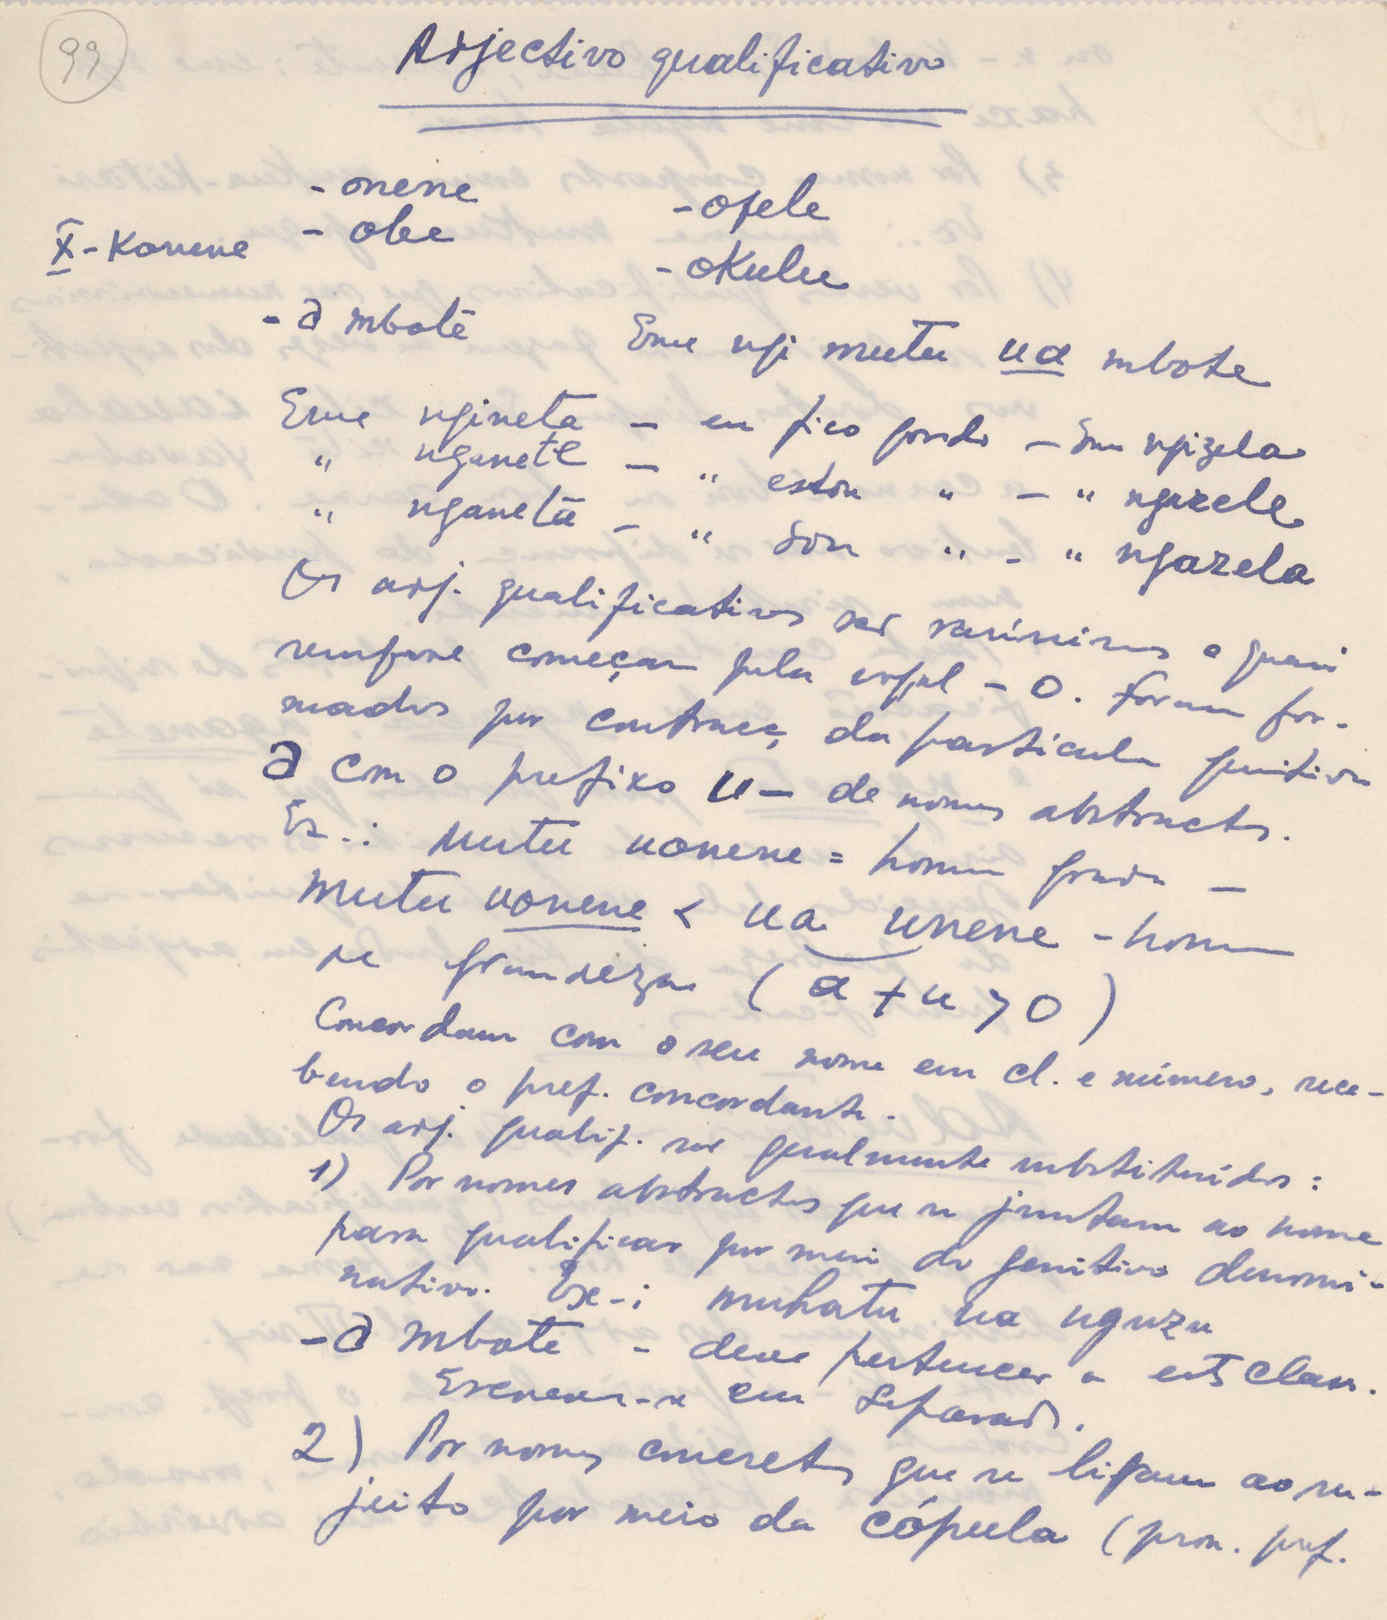 99
Adjectivo qualificativo
-onene
-ofele
X-Konene
- obe
-okulu
- a mbote
Eme ngi mutu ua mbote
Eme ngineta — eu fico gordo — Eme ngizela
" nganete — " estou " — " ngazele
" nganeta — " sou " - " ngazela
Os adj. qualificativos são raríssimos e quasi
sempre começam pela vogal - O. Foram for-
mados por contracç. da partícula genitiva
a com o prefixo u- de nomes abstractos.
Ex.: Mutu uonene = homem grande —
Mutu uonene < ua unene - homem
de grandeza (a + u > o)
Concordam com o seu nome em cl. e número, rece-
bendo o pref. concordante.
Os adj. qualif. são geralmente substituídos:
1) Por nomes abstractos que se juntam ao nome
para qualificar por meio do genitivo denomi-
nativo. Ex-: muhatu ua nguzu
-a mbote - deve pertencer a esta classe.
Escreve-se em separado.
2) Por nomes concretos que se ligam ao su-
jeito por meio da cópula (pron. pref.